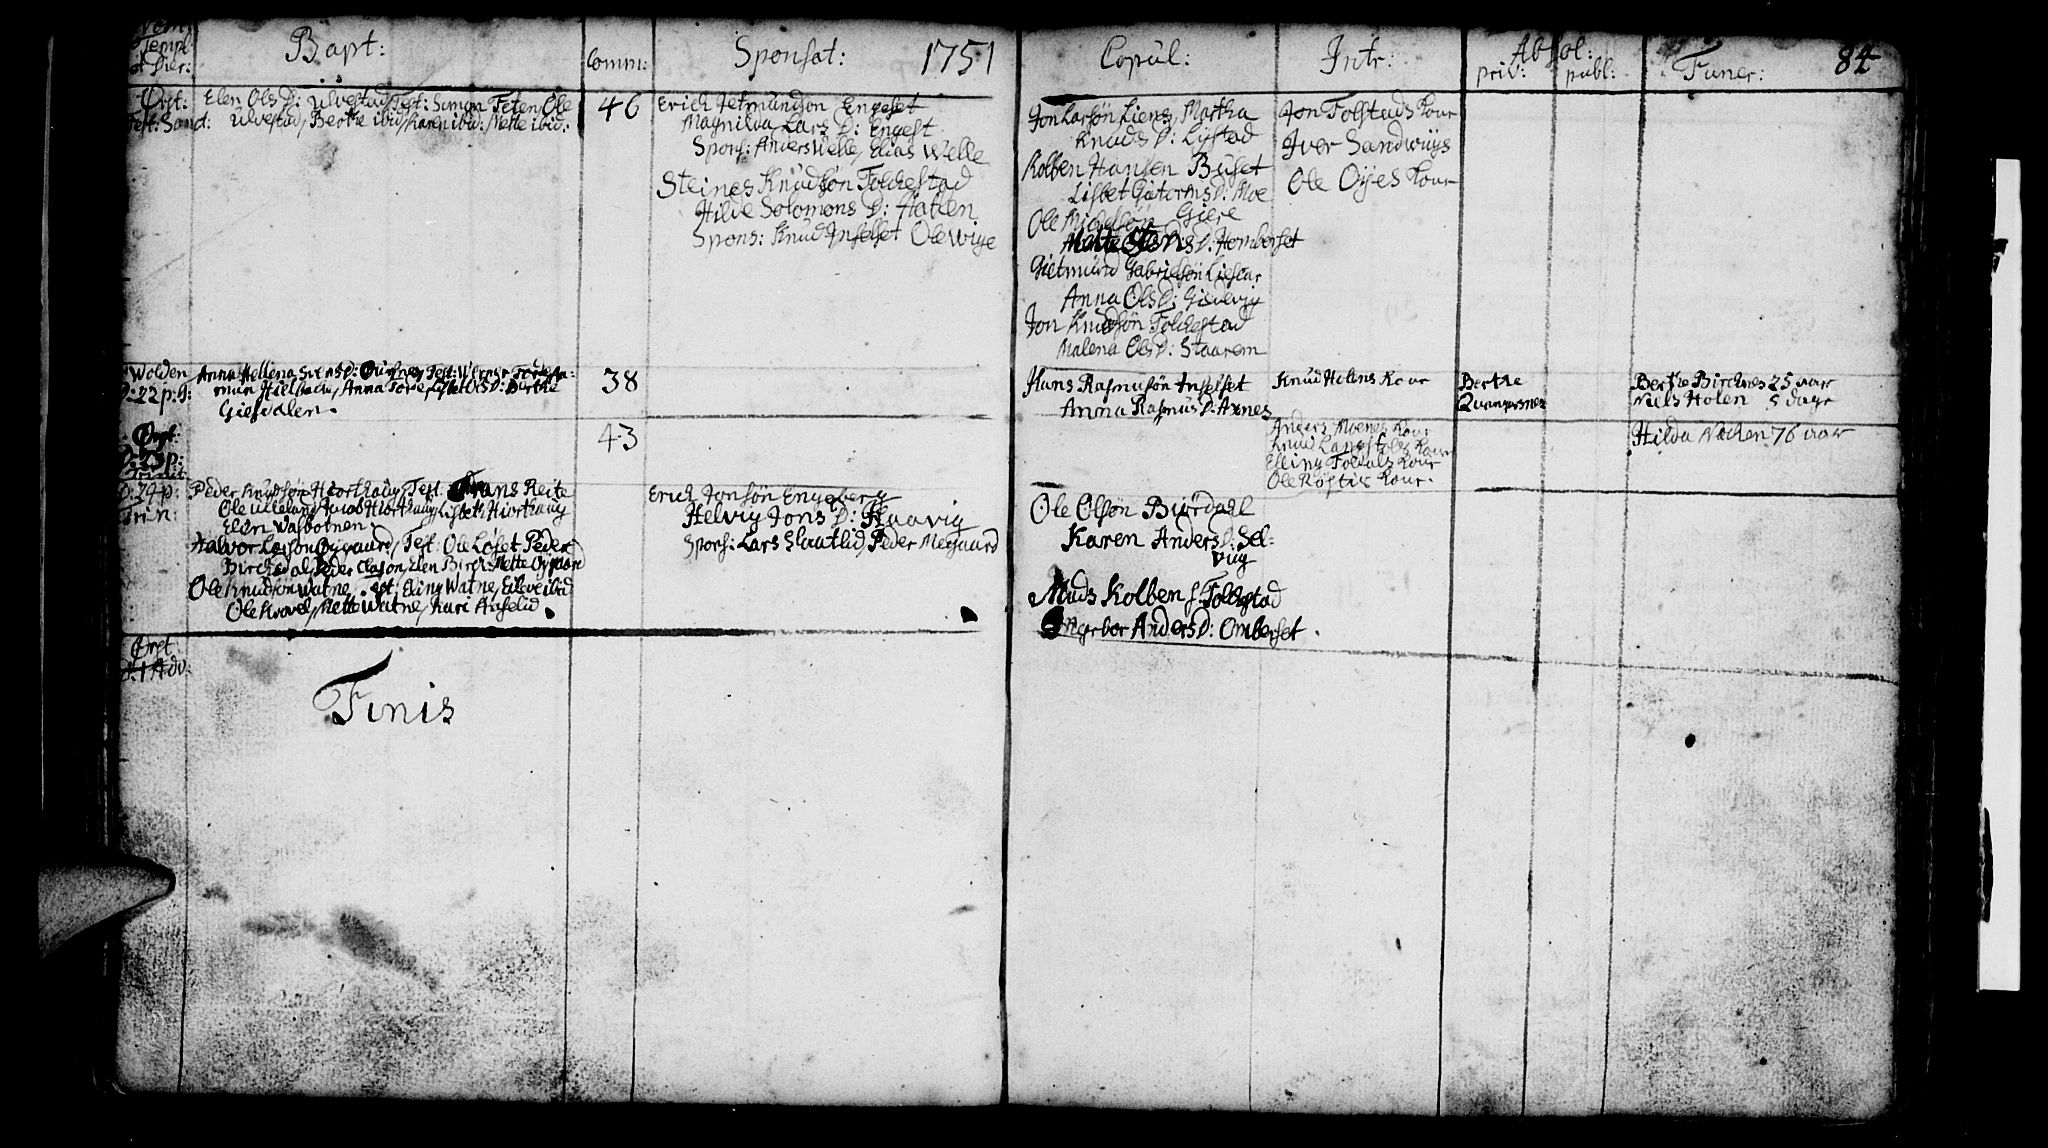 Nom:
Templ:
et Dier:
Bapt:
Comm:
Sponsat:
1751
Copul:
Intr:
Absol:
priv:
publ:
Funer:
84
Ørst:
Fest: Sanct:
Elen Ols D: Ulvestad Test: Simon Feten, Ole
Ulvestad, Berte ibid, Karen ibid: Mette ibid:
46
Erich Jetmundsøn Engeset
Magnilda Lars D: Engest
Spons: Anders Welle, Elias Welle
Steines Knudsøn Folchestad
Hilde Solomons D: Hatlen
Spons: Knud Inselset Ole Wige
Jon Larsøn Lienes, Martha
Knuds D: Lystad
Kolben Hansen Buset
Lisbet D: Moe
Ole Giere
Mette D: Homberset
Gietmund Gabrielsøn
Anna Ols D:
Jon Knudsøn Folchestad
Malena Ols D: Staarem
Jon Folstads Kone
Iver Sandwiigs
Ole Øyes Kone
Wolden
D: 22 p: 9:
Anna Hellena Svens D: Test: Werner
Anna Berthe
Giesdalen.
38
Hans Rasmusøn Inselset
Anna Rasmus D: Aarnes
Knud Holens Kone
Berthe
Berthe Birchnes 25 aar
Niels Holen 5 dage
Ørst:
D: 23 p:
Trinit:
43
Anders Moenes Kone
Knud Kone
Elling Kone
Ole Kone.
Hilda Nechen 76 aar
D: 24 p:
Trin:
Peder Knudsøn Hiorthaug Test: Frans Reite
Ole Ulleland, Jacob Hiorthaug, Lisbeth Hiorthaug
Elen Wasbotnen.
Halvor Larsøn Øygaard, Test: Ole Løset Peder
Birchedal, Peder Elen Birch: Mette Øygaard
Ole Knudsøn Watne, Test: Elling Watne, ibid
Ole Krovel, Mette Watne, Kari
Erich Jonsøn Engeberg
Helvig Jons D: Haavig
Spons: Lars Slaatlid, Peder Megaard
Ole Olsøn Biørdahl
Karen Anders D: Sel-
vug
Mads Kolben s. Folchestad
Ingebor Anders D: Omberset.
Ørst
D: 1 Adv:
Finis